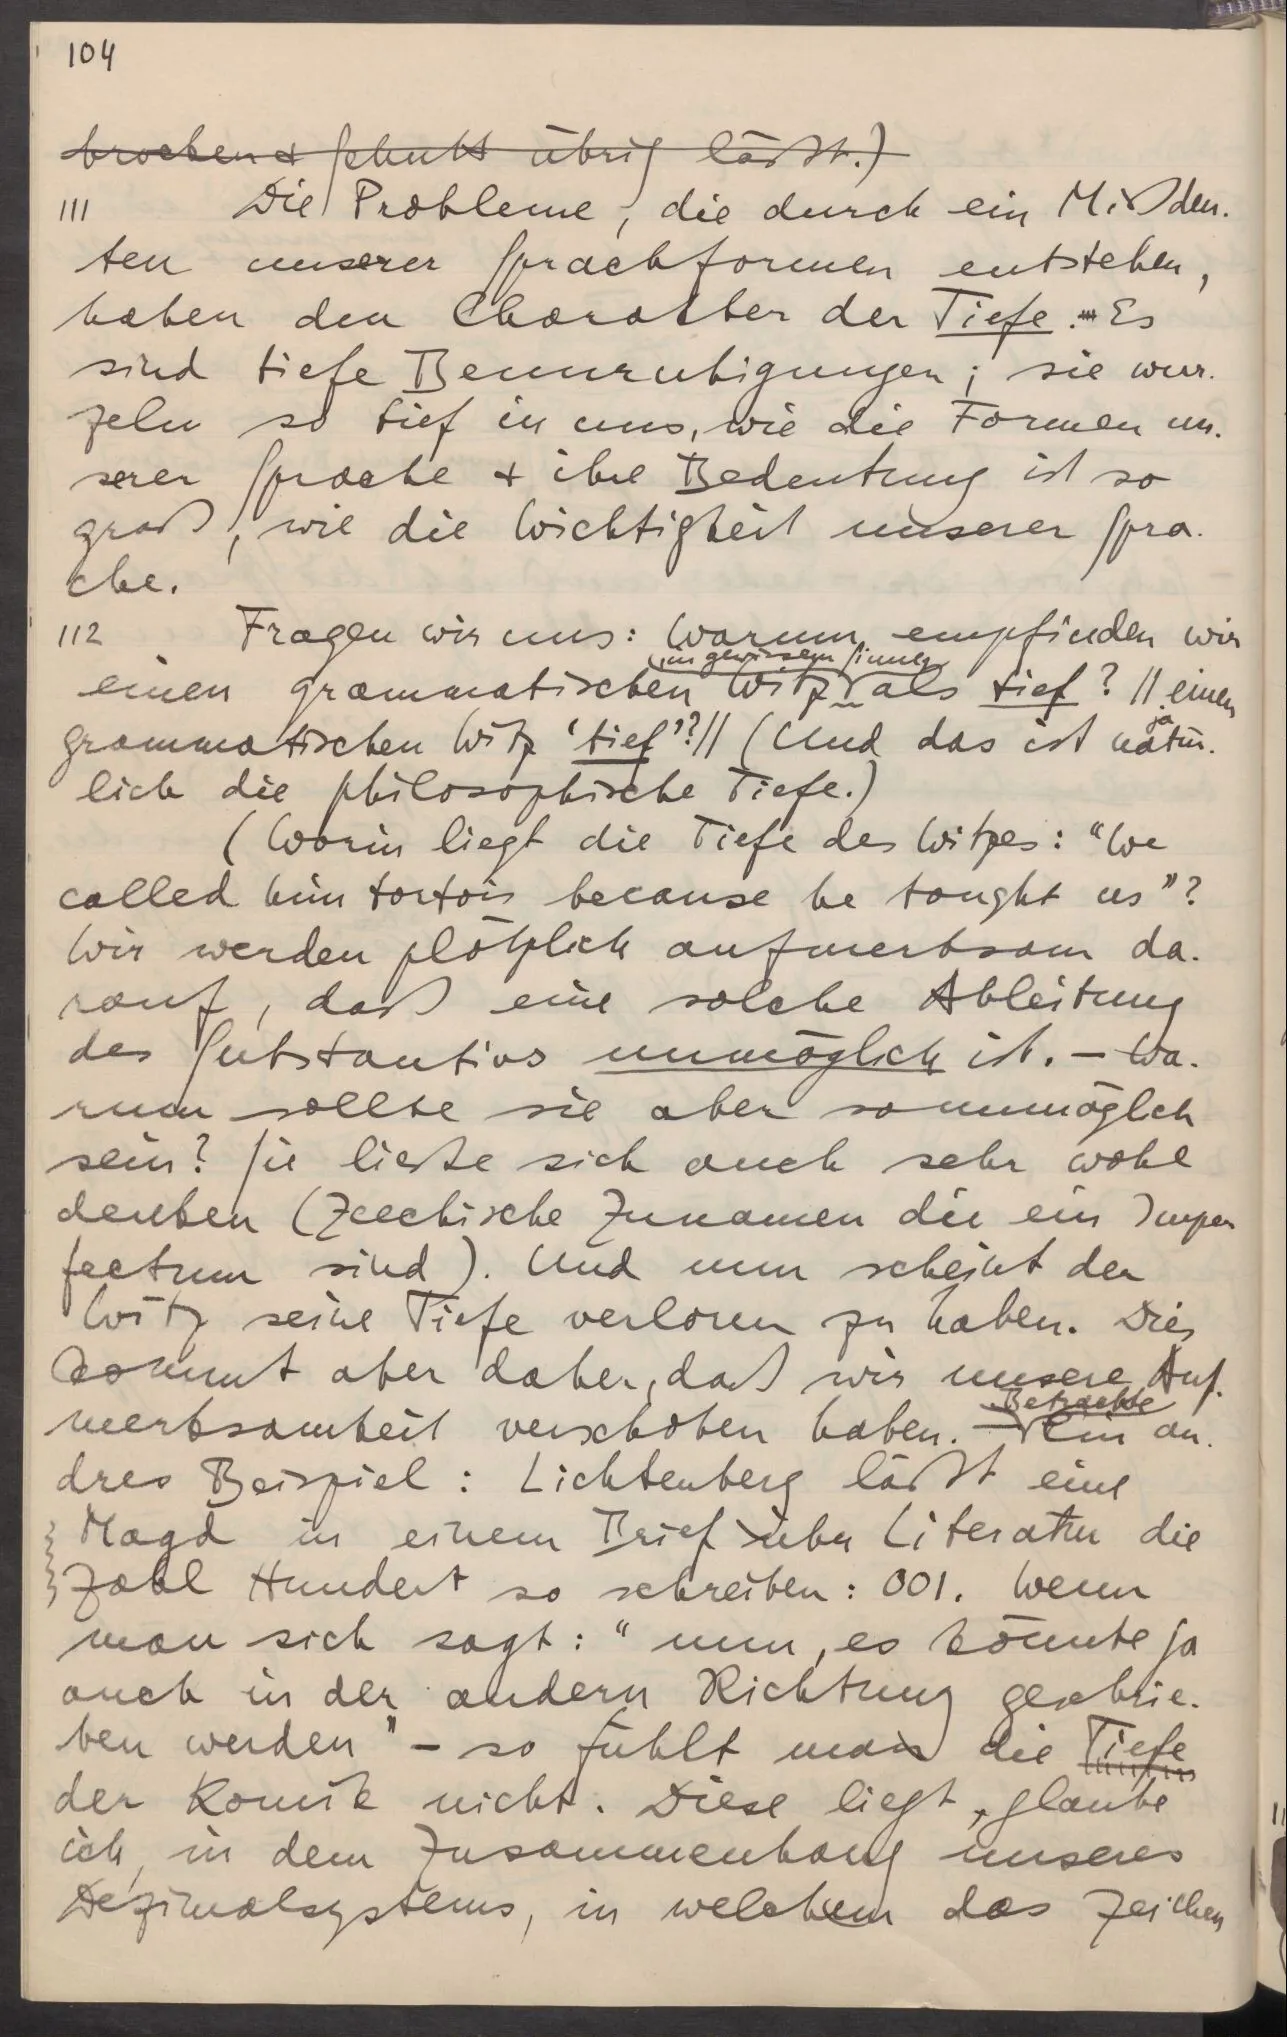 104
brocken & Schutt übrig läßt.)
111 Die Probleme, die durch ein Mißdeu-
ten unserer Sprachformen entstehen,
haben den Charakter der Tiefe. Es
sind tiefe Beunruhigungen; sie wur-
zeln so tief in uns, wie die Formen un-
serer Sprache & ihre Bedeutung ist so
groß, wie die Wichtigkeit unserer Spra-
che.
112 Fragen wir uns: Warum empfinden wir
in gewissem Sinne
einen grammatischen Witz als tief? // einen
ja
grammatischen Witz 'tief'?// (Und das ist natür-
lich die philosophische Tiefe.)
(Worin liegt die Tiefe des Witzes: "We
called him tortois because he tought us"?
Wir werden plötzlich aufmerksam da-
rauf, daß eine solche Ableitung
des Substantivs unmöglich ist. – Wa-
rum sollte sie aber so unmöglich
sein? Sie ließe sich auch sehr wohl
denken (Zcechische Zunamen die ein Imper
fectum sind). Und nun scheint der
Witz seine Tiefe verloren zu haben. Dies
kommt aber daher, daß wir unsere Auf-
Betrachte
merksamkeit verschoben haben. – Ein an-
dres Beispiel: Lichtenberg läßt eine
Magd in einem Brief über Literatur die
Zahl Hundert so schreiben: 001. Wenn
man sich sagt: "nun, es könnte ja
auch in der andern Richtung geschrie-
ben werden" – so fühlt man die Tiefe
der Komik nicht. Diese liegt, glaube
ich, in dem Zusammenhang unseres
Dezimalsystems, in welchem das Zeichen